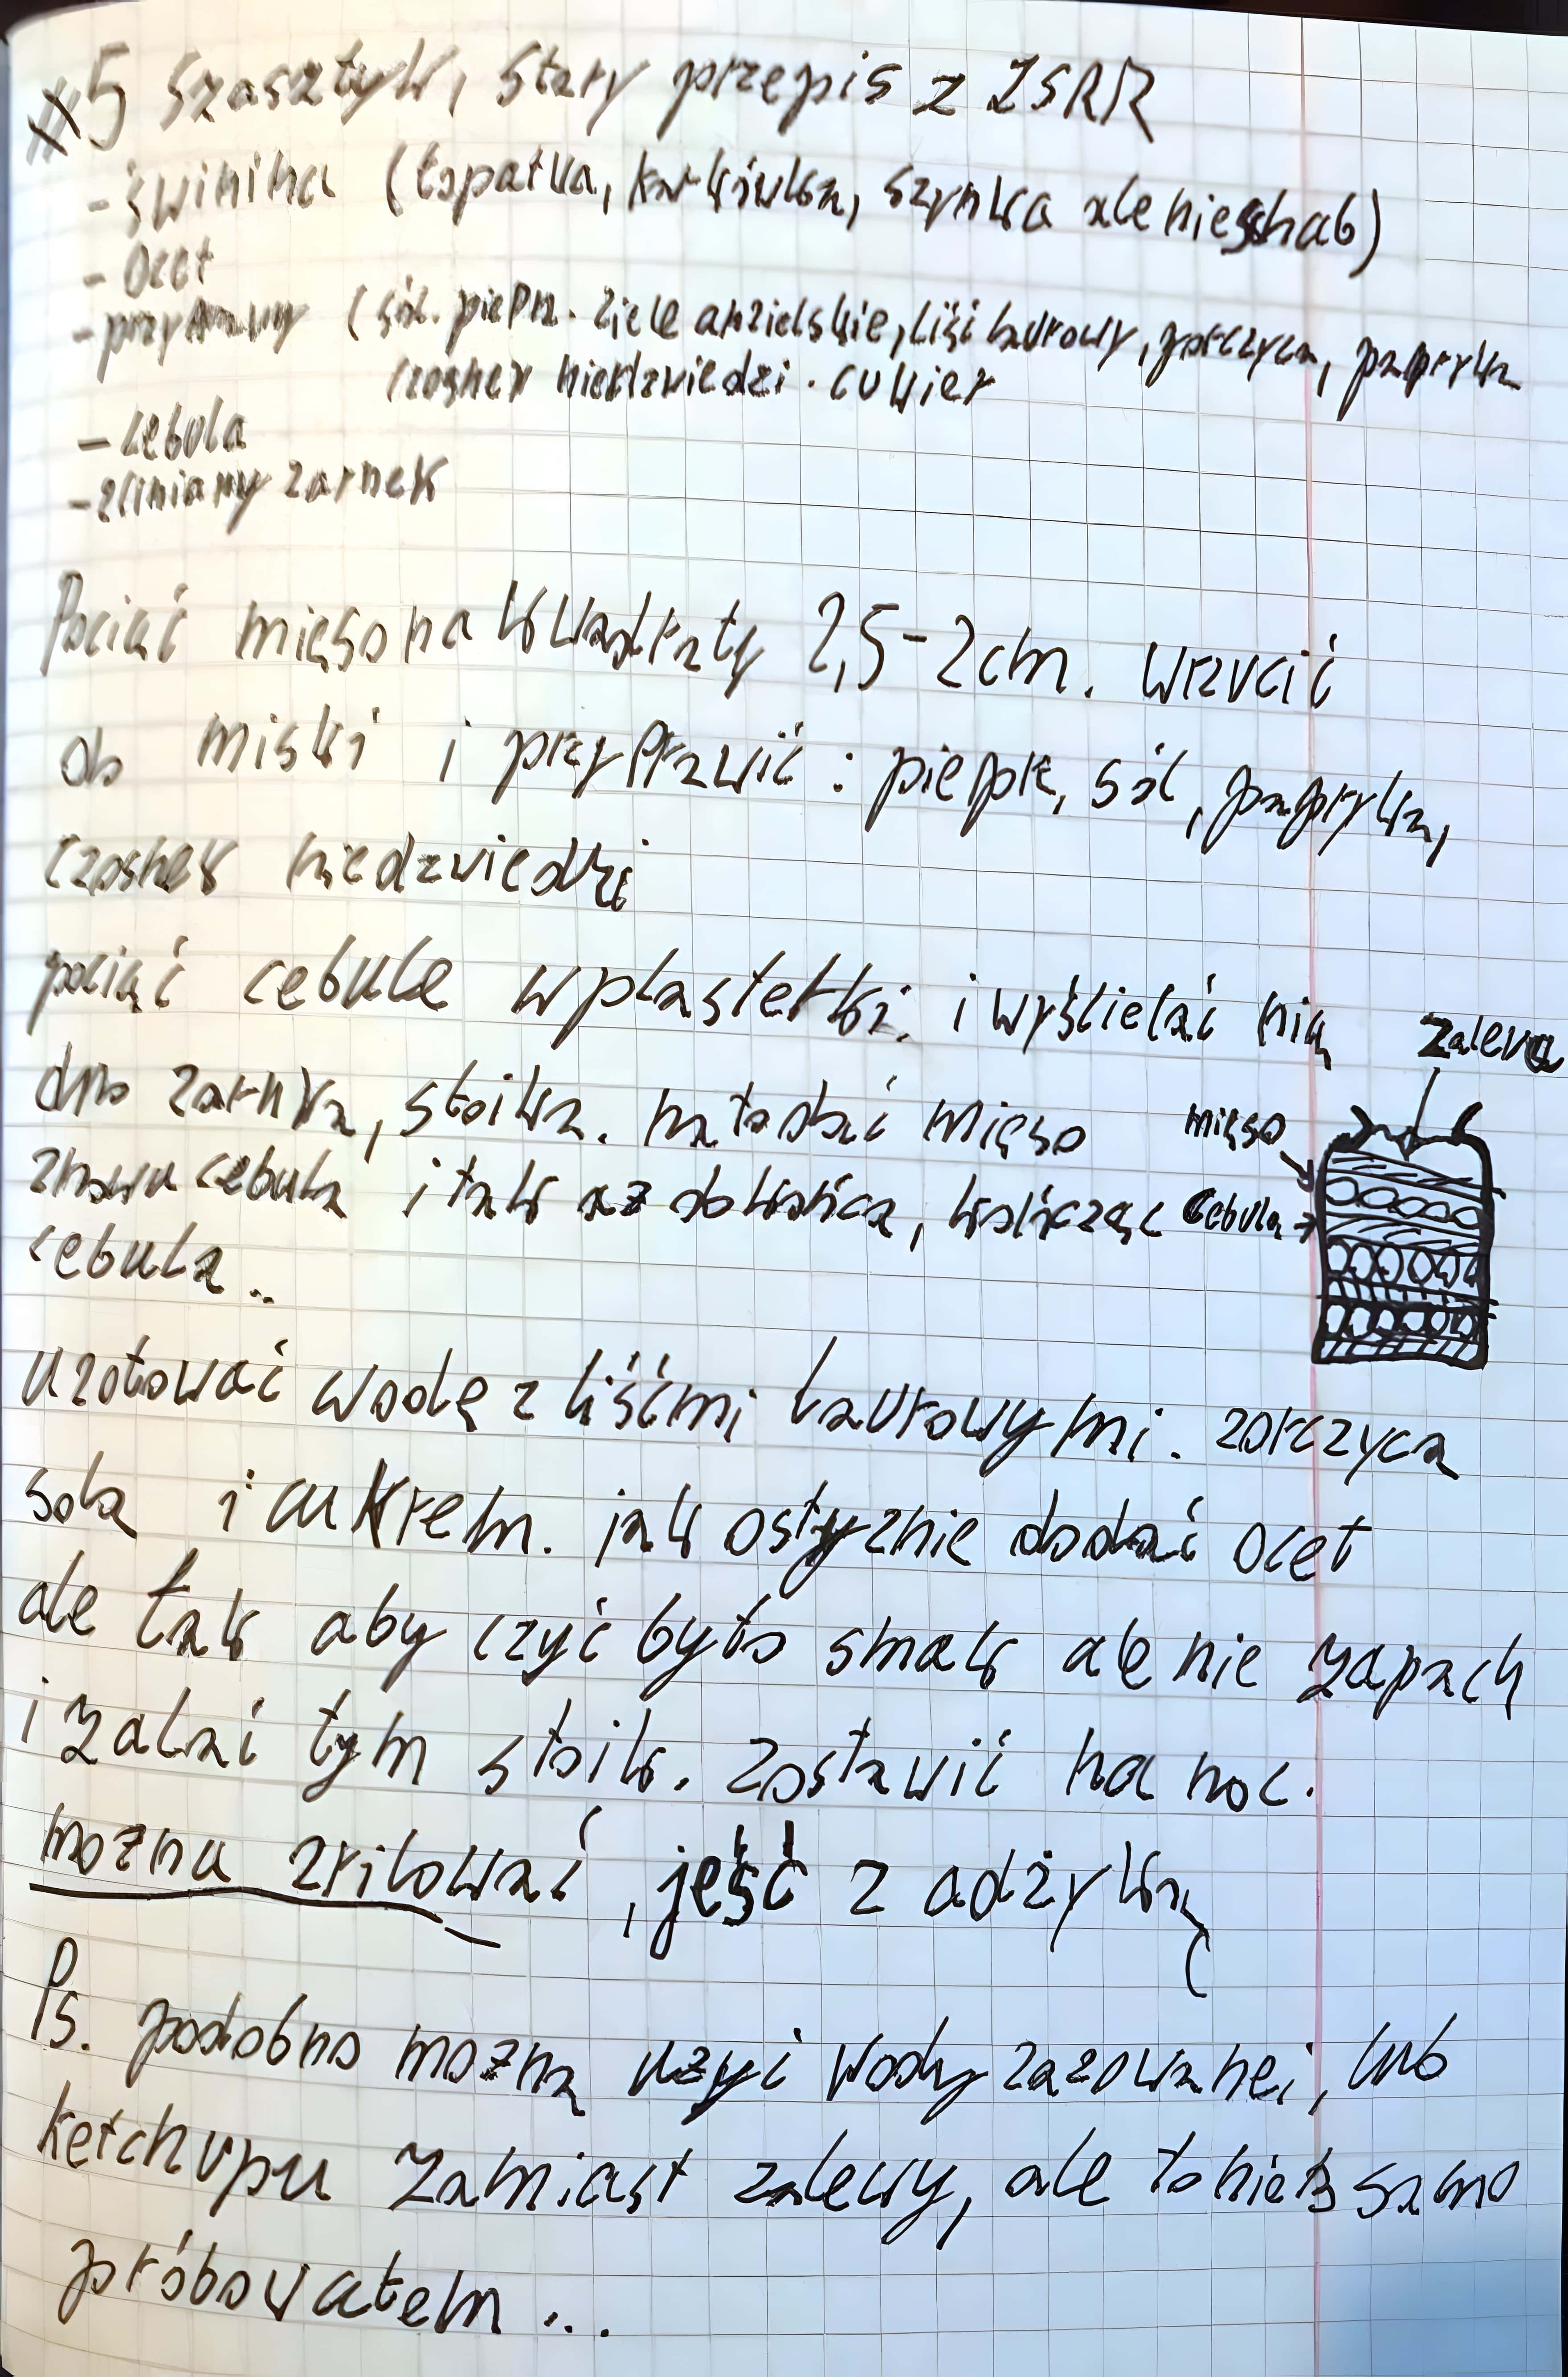 #5 Szasztyk, stary przepis z ZSRR
- świnina (łopatka, karkówka, szynka ale nie schab)
- Ocet
- przyprawy (sól. pieprz. ziele angielskie, liść laurowy, gorczyca, papryka
czosnek niedzwiedzi. cukier
- cebula
- gliniany garnek
Pociąć mięso na kwadraty 2,5-2cm. wrzucić
do miski i przyprawić : pieprz, sól, papryka,
czosnek niedzwiedzi
pociąć cebule w plasterki. i wyścielać nią
dno garnka, słoika. nakładać mięso
znowu cebula i tak az do końca, kończąc
cebula..
zalewa
mięso
cebula
ugotować wodę z liśćmi laurowymi. gorczyca
sola i cukrem. jak ostygnie dodać ocet
ale tak aby czyć było smak ale nie zapach
i zalać tym słoik. zostawić na noc.
mozna grilować, jeść z adżyką
Ps. podobno mozna uzyć wody gazowanej, lub
ketchupu zamiast zalewy, ale to nie to samo
próbowałem...